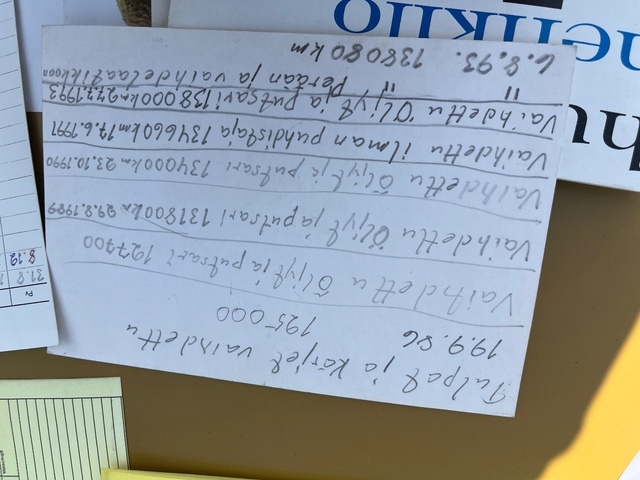 Tulpat ja kärjet vaihdettu
19.9.86 125000
Vaihdettu Öljyt ja putsari 127700
Vaihdettu Öljyt ja putsari 131800km 29.8.1989
Vaihdettu Öljyt ja putsari 134000km 23.10.1990
Vaihdettu ilman puhdistaja 134660km 17.6.1991
Vaihdettu Öljyt ja putsari 138000km 27.7.1993
" " Perään ja vaihdelaatikkoon
6.8.93. 138080 km
enkilö
hu
Pv
31.8
8.12